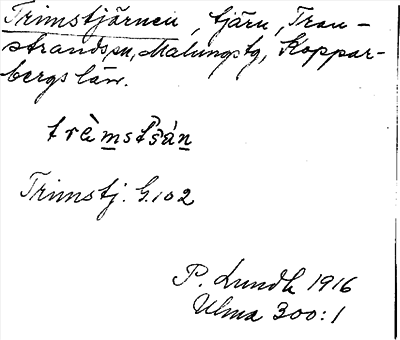 Trimstjärnen, tjärn, Tran-
strands sn, Malungs tg, Koppar-
bergs län.
Trimstj. G.102
P. Lundh 1916
Ulma 300:1